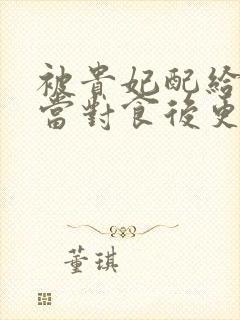 被貴妃配給
當對食後史
董琪